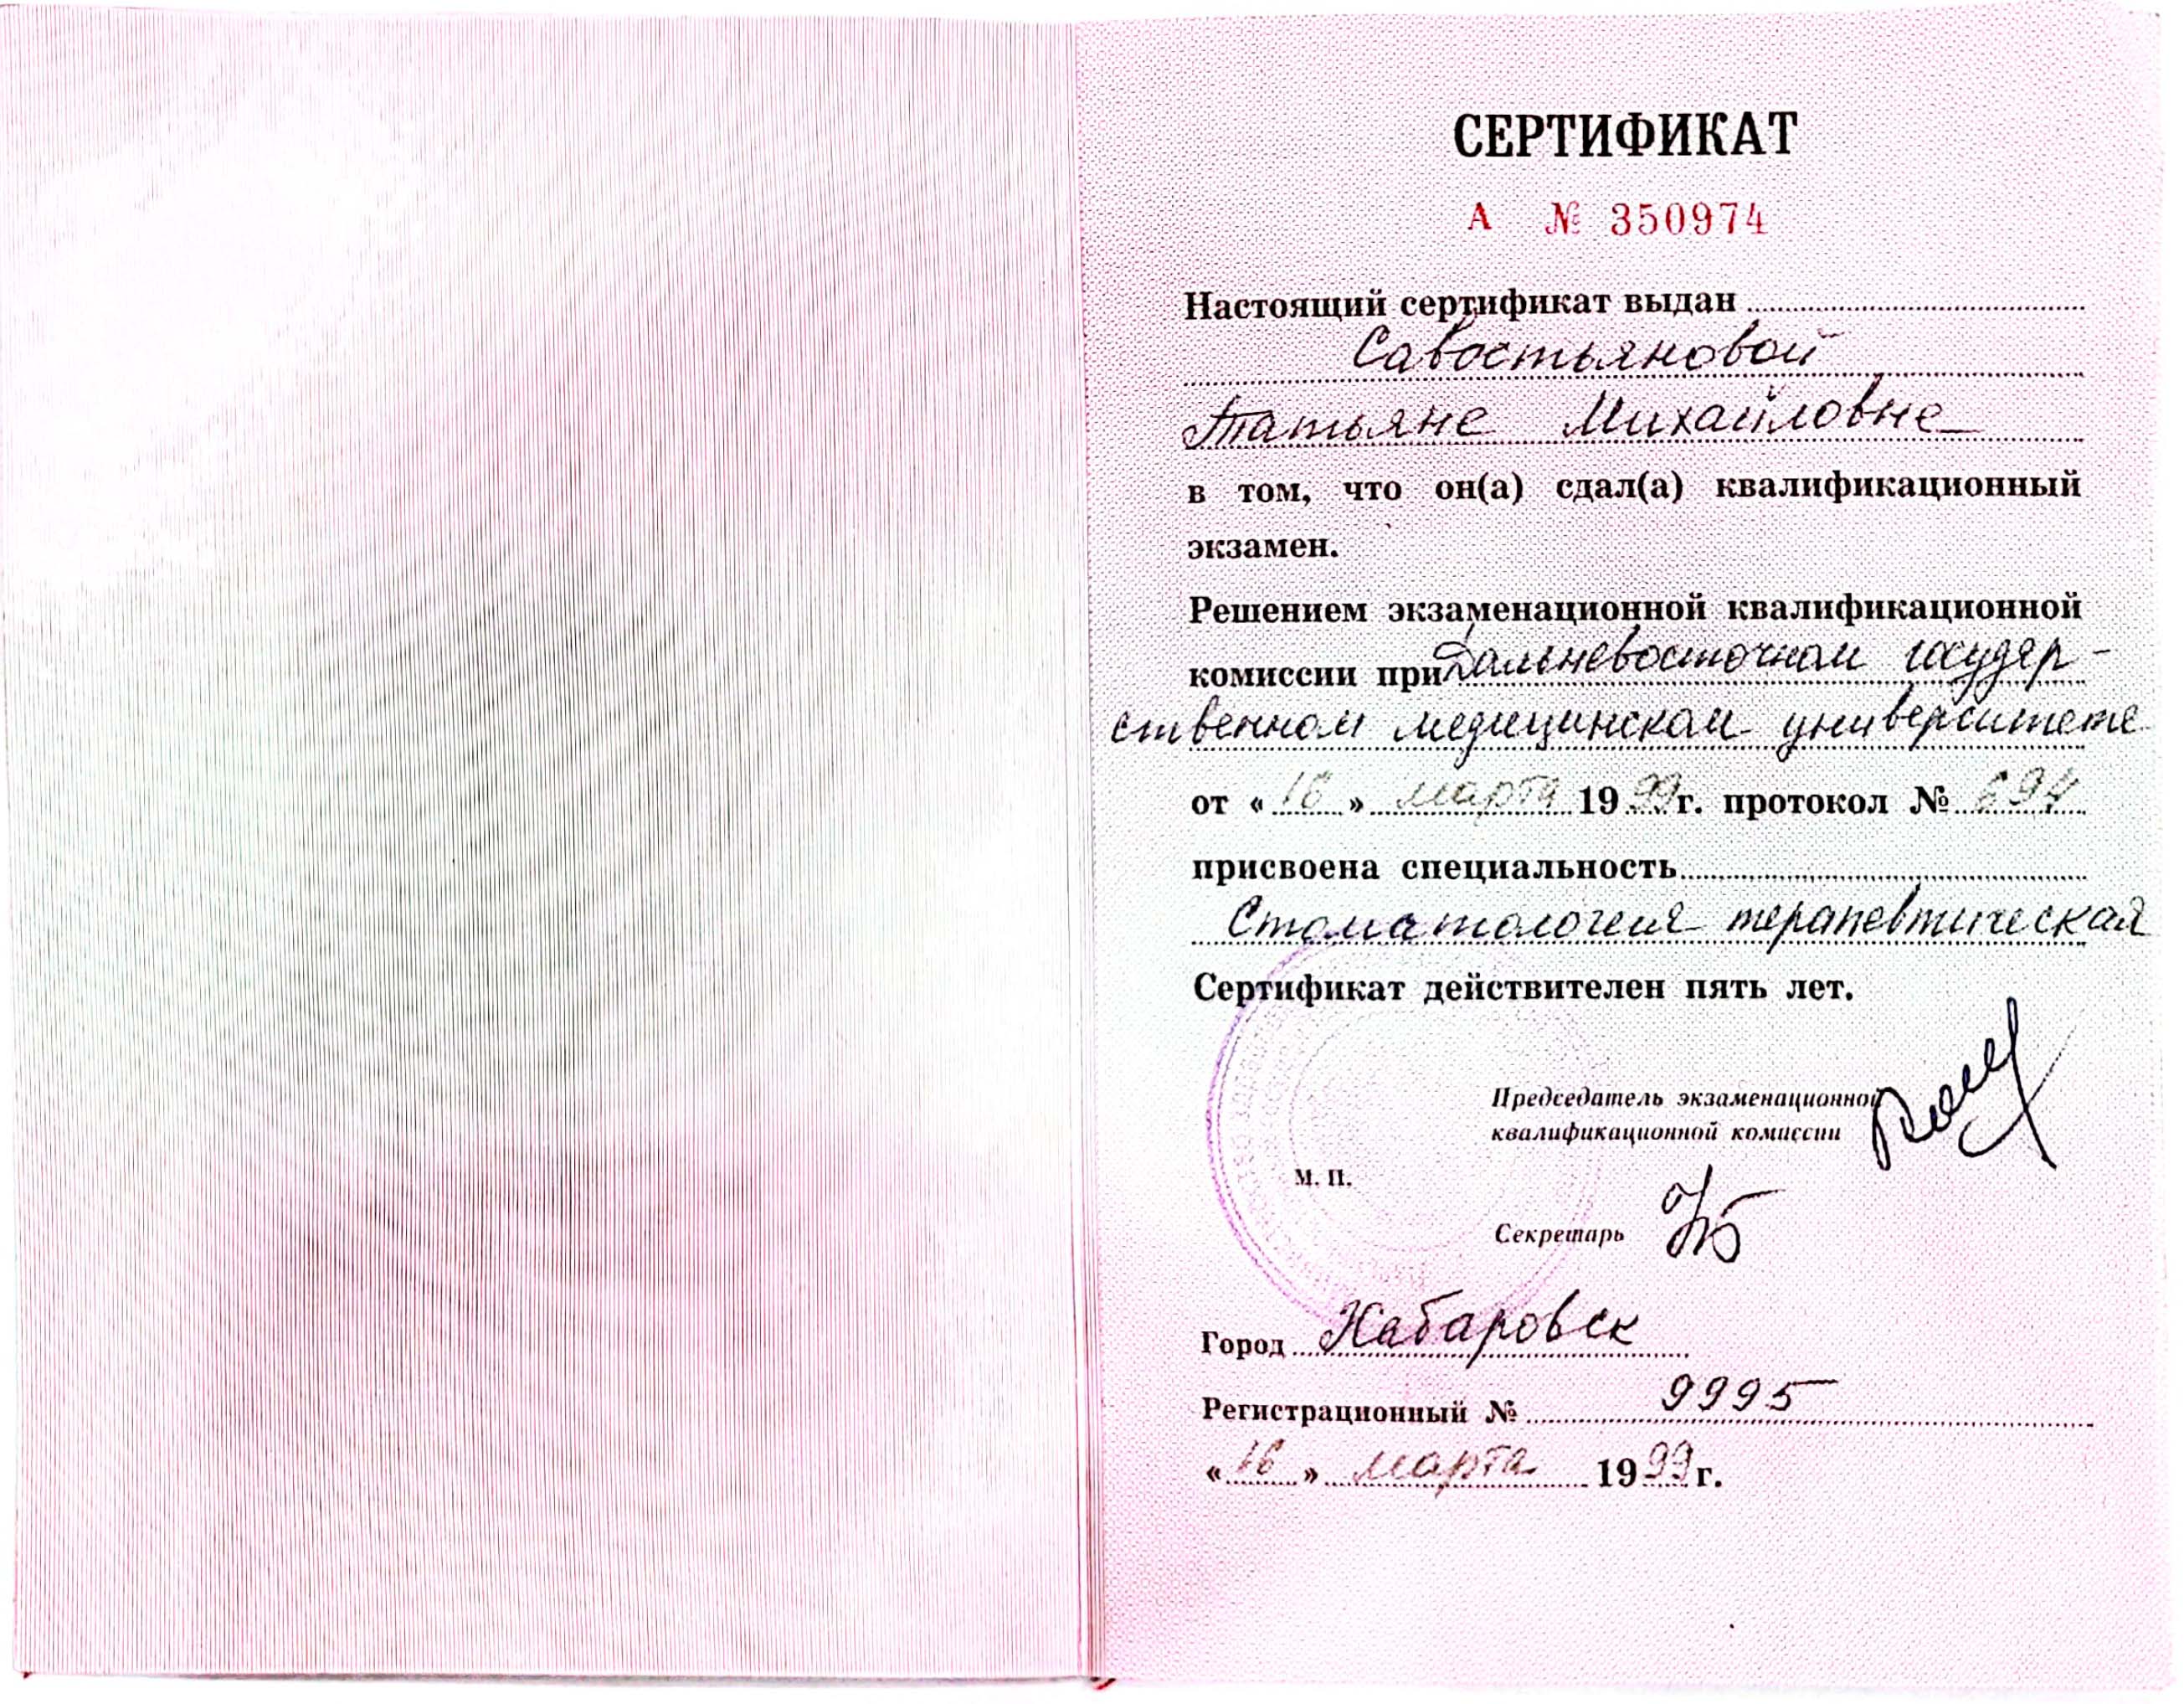 СЕРТИФИКАТ
А № 350974
Настоящий сертификат выдан
Савостьяновой
Татьяне Михайловне
в том, что он(а) сдал(а) квалификационный
экзамен.
Решением экзаменационной квалификационной
комиссии при Дальневосточном государ-
ственном медицинском университете
от «16» марта 1999г. протокол № 694
присвоена специальность
Стоматология терапевтическая
Сертификат действителен пять лет.
Председатель экзаменационной
квалификационной комиссии
М. П.
Секретарь
Город Хабаровск
Регистрационный № 9995
«16» марта 1999г.